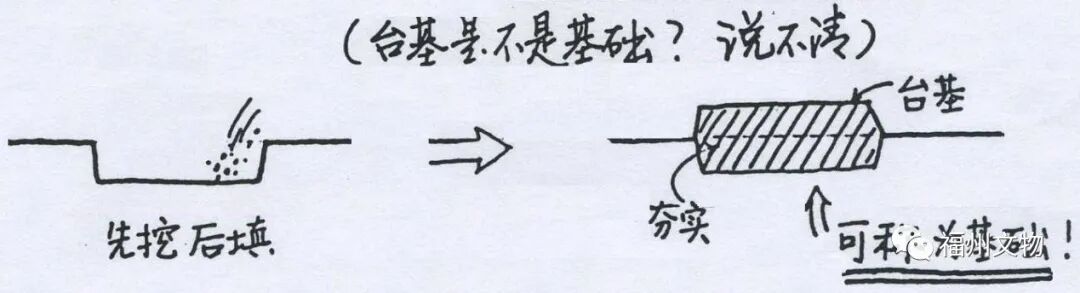 （台基是不是基础？说不清）
台基
夯实
先挖后填
可称为基础！
福州文物